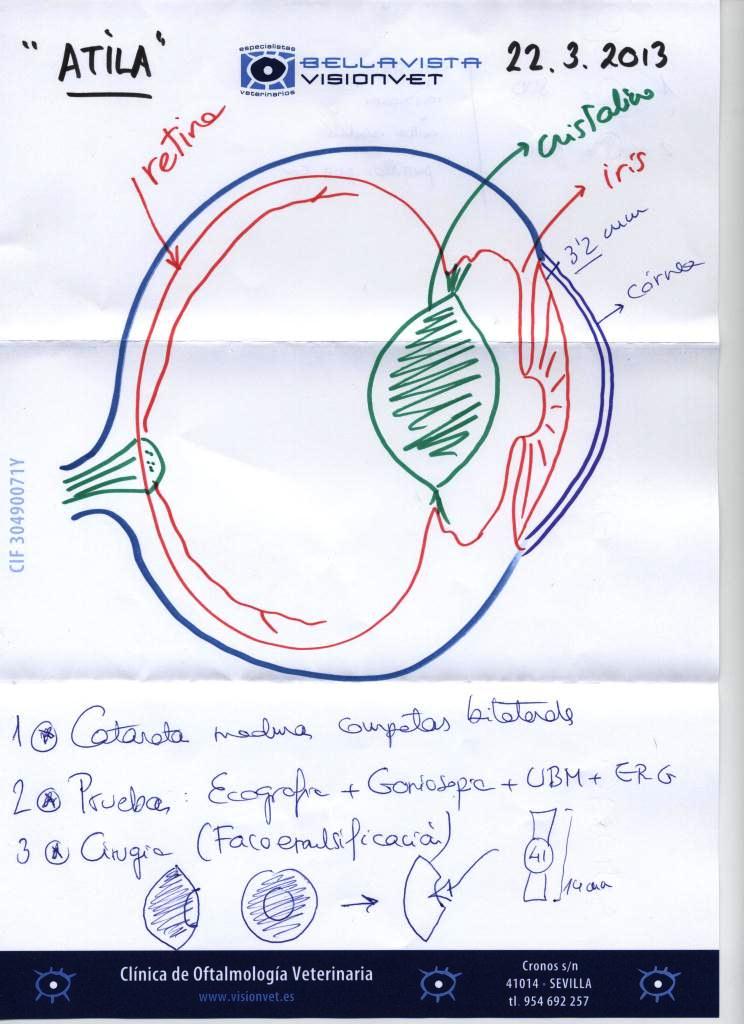 "ATILA"
especialistas
BELLAVISTA
VISIONVET
veterinarios
22.3.2013
retina
cristalino
iris
3'2 mm
córnea
CIF 30490071Y
1 Catarata madura completas bilaterales
2 Pruebas: Ecografia + Gonioscopia + UBM + ERG
3 Cirugia (Facoemulsificación)
41
14 mm
Clínica de Oftalmología Veterinaria
www.visionvet.es
Cronos s/n
41014 · SEVILLA
tl. 954 692 257